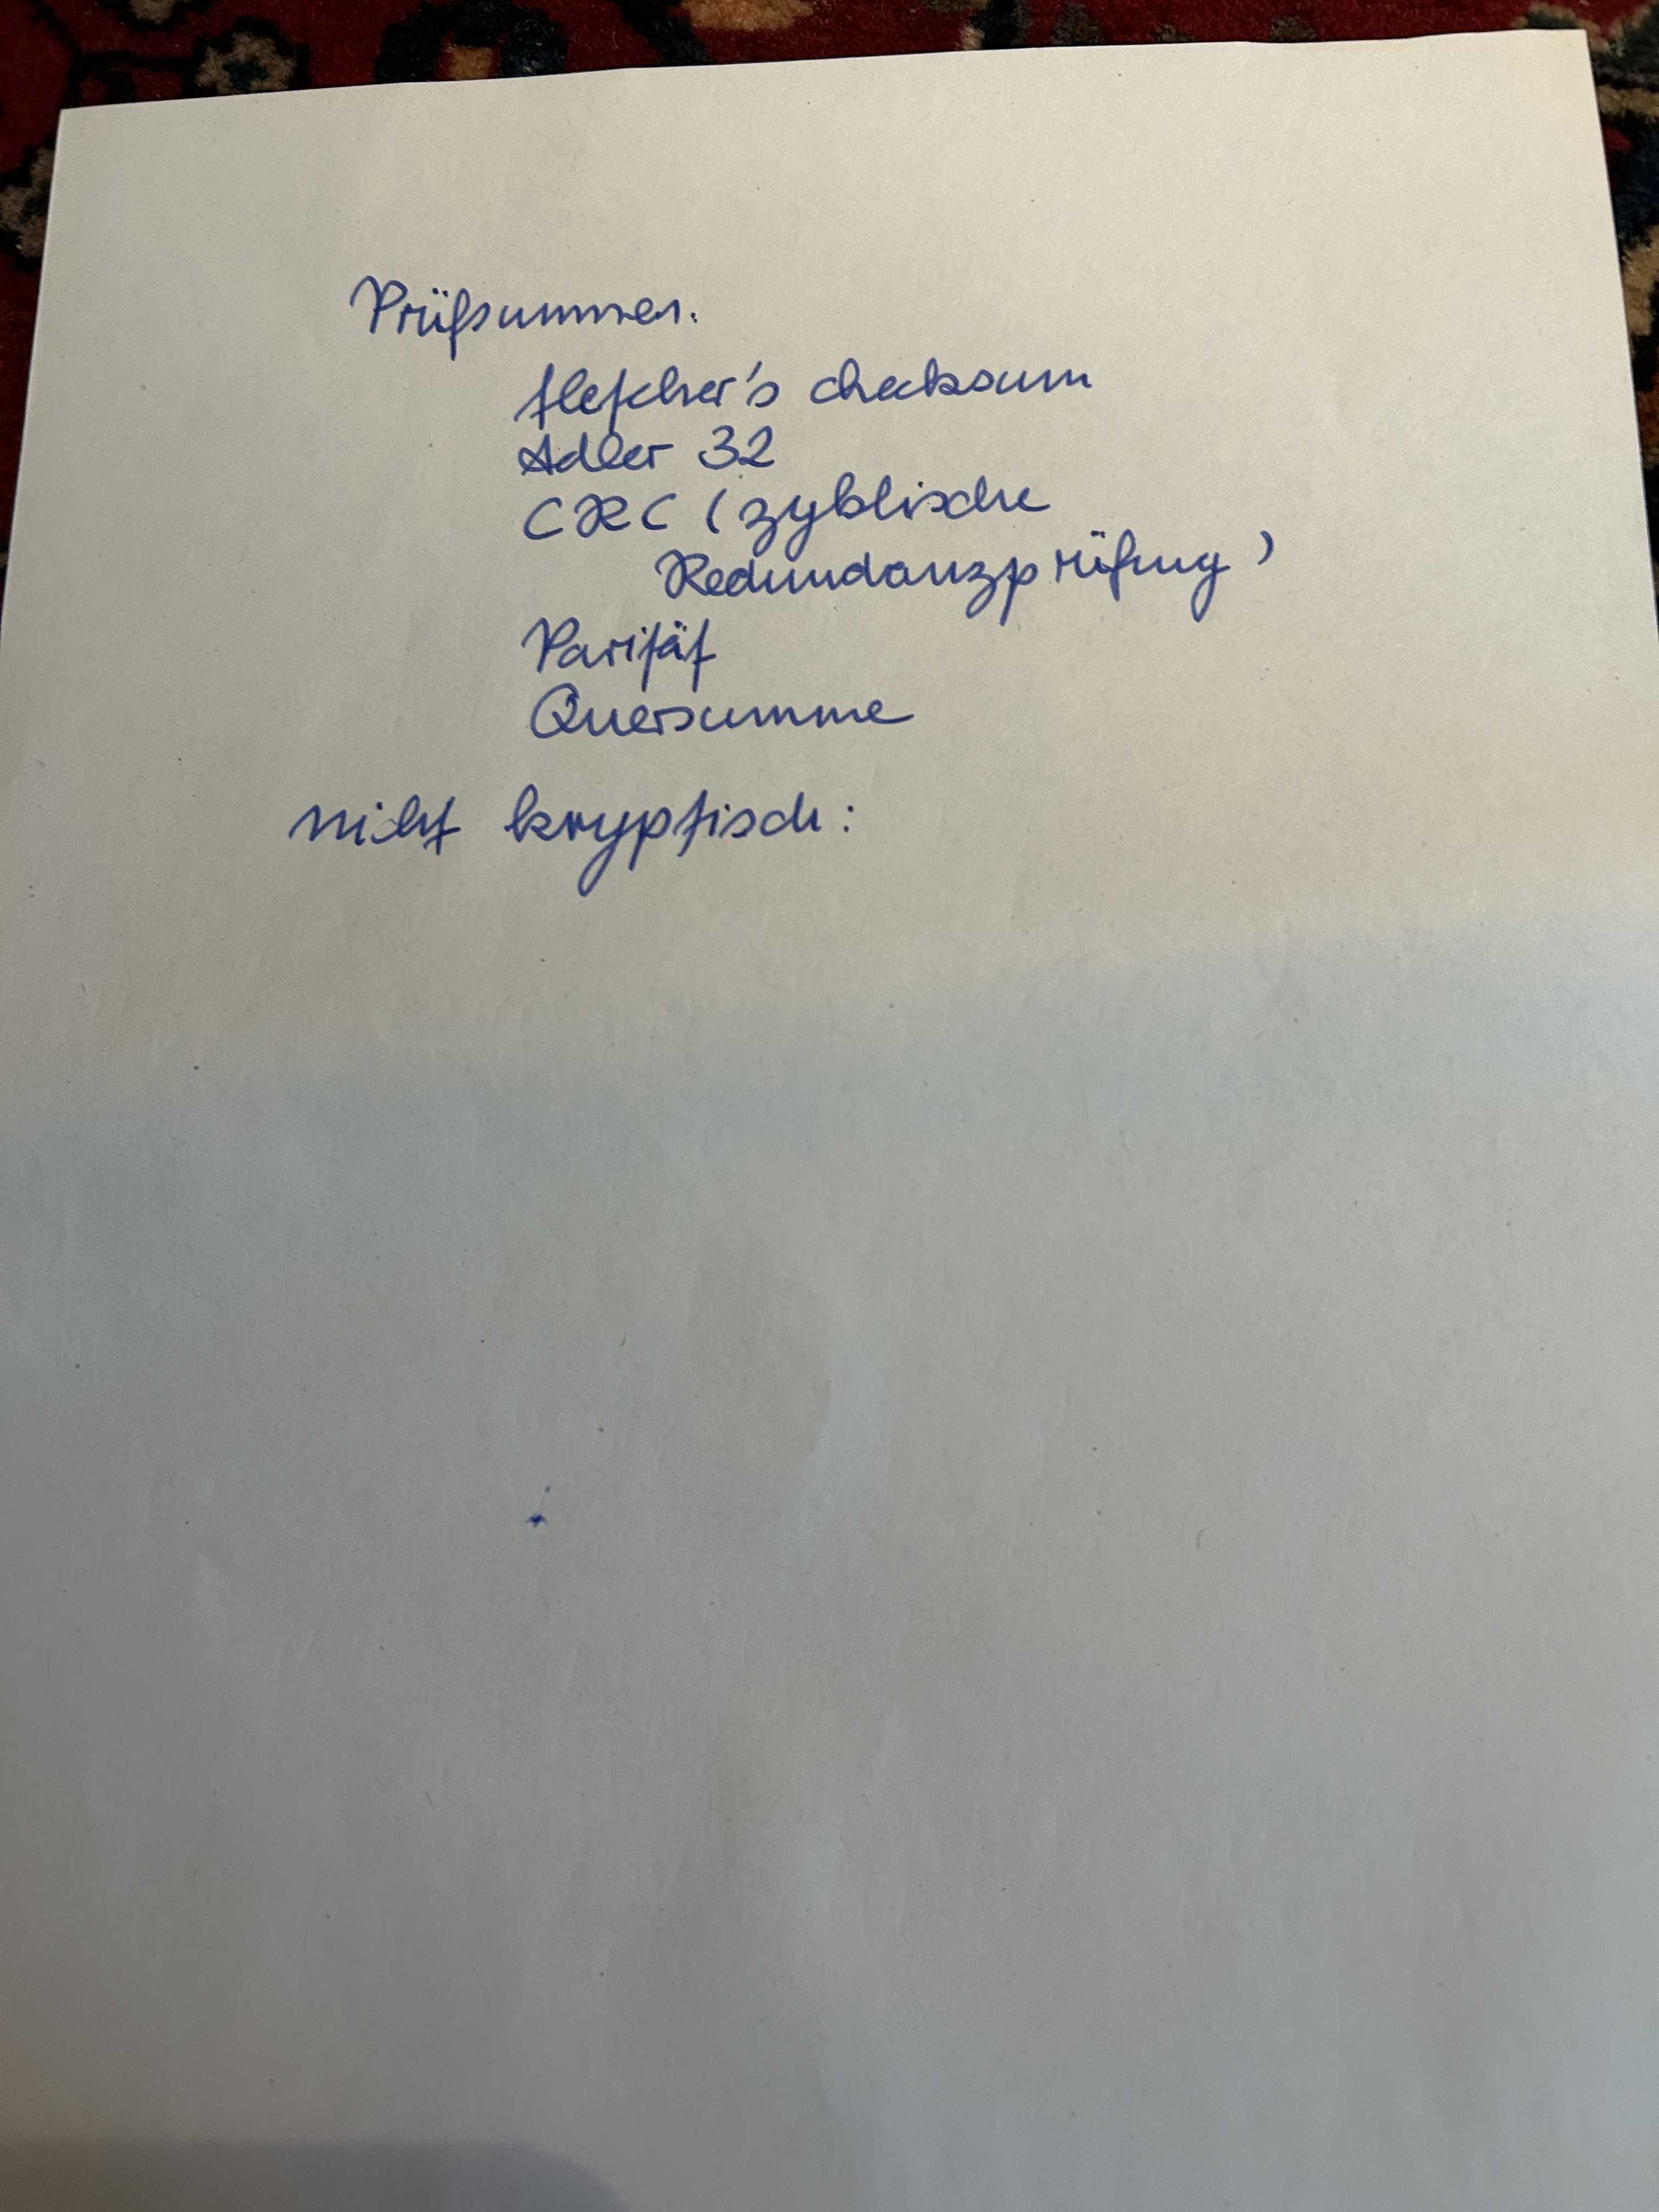 Prüfsummen:
fletcher's checksum
Adler 32
CRC (zyklische
Redundanzprüfung)
Parität
Quersumme
nicht kryptisch: